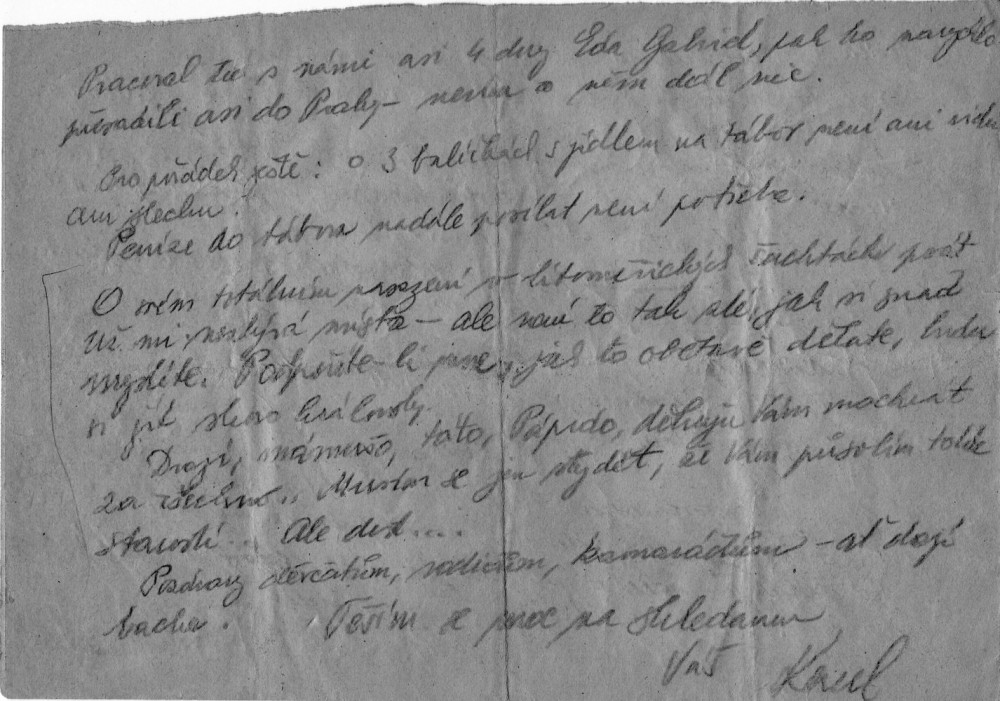 Pracoval tu s námi asi 4 dny Eda Gabriel, pak ho
přeřadili asi do Prahy – nevím o něm dál nic.
Pro pořádek ještě: o 3 balíčkách s jídlem na tábor není ani vidu
ani slechu.
Peníze do tábora nadále posílat není potřeba.
O mém totálním nasazení v litoměřických šachtách psát
už mi nezbývá místa – ale není to tak zlé, jak si snad
myslíte. Podpoříte-li mne, jak to obětavě děláte, budu
si žít
Drazí, mámo, táto, děkuji Vám mockrát
za všechno.. Musím se jen stydět, že Vám působím tolik
starostí... Ale dost....
Pozdravy děvčatům, rodičům, kamarádům – ať dají
bacha. Těším se moc na shledanou
Váš Karel